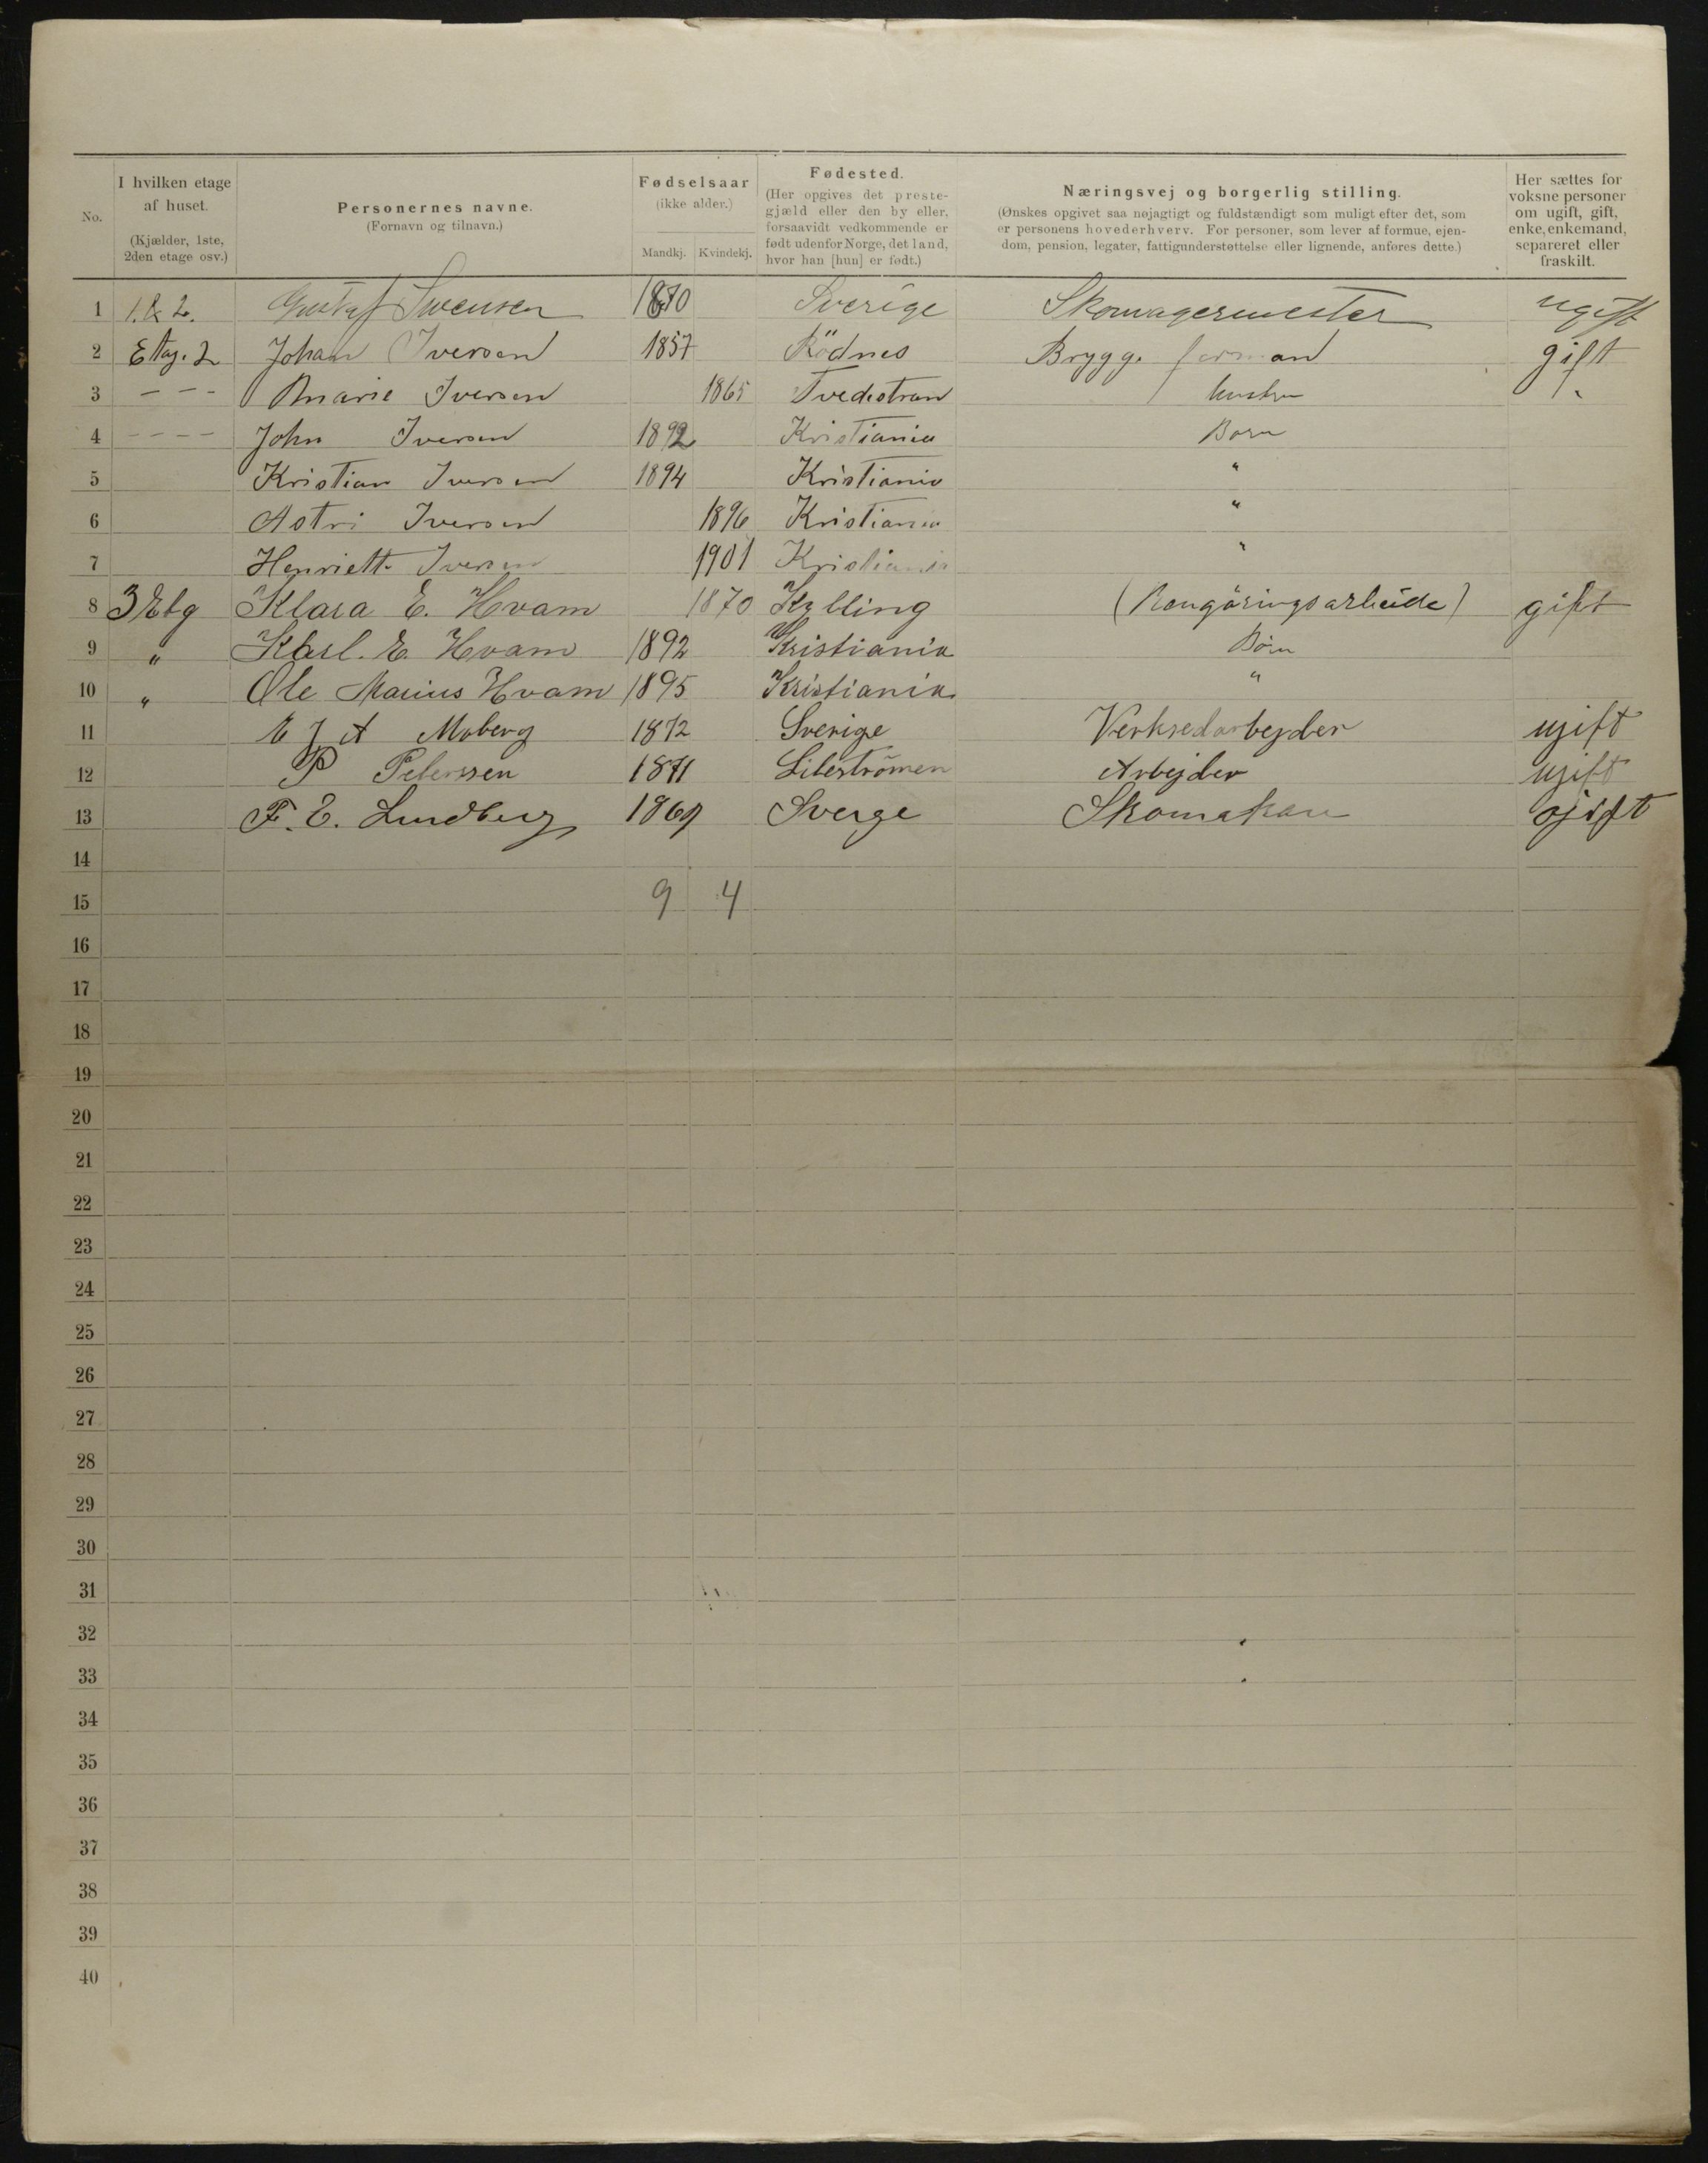 No. | I hvilken etage af huset. (Kjælder, 1ste, 2den etage osv.) | Personernes navne. (Fornavn og tilnavn.) | Fødselsaar (ikke alder.) Mandkj. Kvindekj. | Fødested. (Her opgives det prestegjæld eller den by eller, forsaavidt vedkommende er født udenfor Norge, det land, hvor han [hun] er født.) | Næringsvej og borgerlig stilling. (Ønskes opgivet saa nøjagtigt og fuldstændigt som muligt efter det, som er personens hovederhverv. For personer, som lever af formue, ejendom, pension, legater, fattigunderstøttelse eller lignende, anføres dette.) | Her sættes for voksne personer om ugift, gift, enke, enkemand, separeret eller fraskilt.
1 1. & 2. Gustaf Swensen 1870 Sverige Skomagermester ugift
2 Etag. 2 Johan Iversen 1857 Rödnes Brygge forman gift
3 - - - Marie Iversen 1865 Tvedestran Hustru "
4 - - - - John Iversen 1892 Kristiania Born
5 Kristian Iversen 1894 Kristiania "
6 Astri Iversen 1896 Kristiania "
7 Henriette Iversen 1901 Kristiania "
8 3 Etg Klara E. Hvam 1870 Kylling (Rengöringsarbeide) gift
9 " Karl. E. Hvam 1892 Kristiania Börn
10 " Ole Marius Hvam 1895 Kristiania "
11 E J A Moberg 1872 Sverige Verkstedarbejder ugift
12 P Peterssen 1871 Lileströmen Arbejder ugift
13 F. E. Lundberg 1869 Sverge Skomakare ojift
14
15 9 4
16
17
18
19
20
21
22
23
24
25
26
27
28
29
30
31
32
33
34
35
36
37
38
39
40